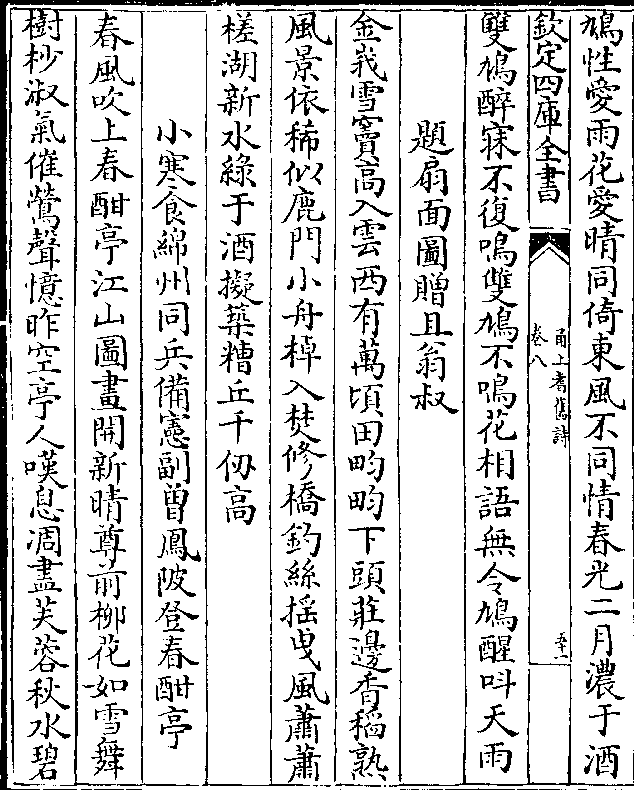 鳩性愛雨花愛晴同倚東風不同情春光二月濃于酒
欽定四庫全書
甬上耆舊詩
卷八
五十一
雙鳩醉寐不復鳴雙鳩不鳴花相語無令鳩醒呌天雨
題扇面圖贈且翁叔
金峩雪竇高入雲西有萬頃田畇畇下頭莊邊香稻熟
風景依稀似鹿門小舟棹入焚修橋釣絲揺曳風蕭蕭
槎湖新水綠于酒擬築糟丘千仭高
小寒食綿州同兵備憲副曾鳳陂登春酣亭
春風吹上春酣亭江山圖畫開新晴尊前柳花如雪舞
樹杪淑氣催鶯聲憶昨空亭人嘆息凋盡芙蓉秋水碧